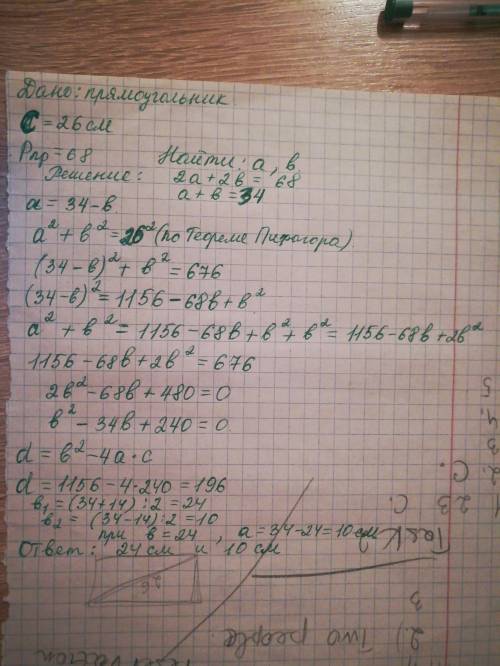 Дано: прямоугольник
c = 26 см
Pпр = 68 Найти: a, в
Решение: 2a + 2в = 68
a + в = 34
a = 34 - в
a² + в² = 26² (по Теореме Пифагора)
(34 - в)² + в² = 676
(34 - в)² = 1156 - 68в + в²
a² + в² = 1156 - 68в + в² + в² = 1156 - 68в + 2в²
1156 - 68в + 2в² = 676
2в² - 68в + 480 = 0
в² - 34в + 240 = 0
d = в² - 4a · c
d = 1156 - 4 · 240 = 196
в₁ = (34 + 14) : 2 = 24
в₂ = (34 - 14) : 2 = 10
при в = 24, a = 34 - 24 = 10 см
Ответ: 24 см и 10 см
26
2.) Two people
3
Task
1. 23 C.
2. C.
3
4.
5